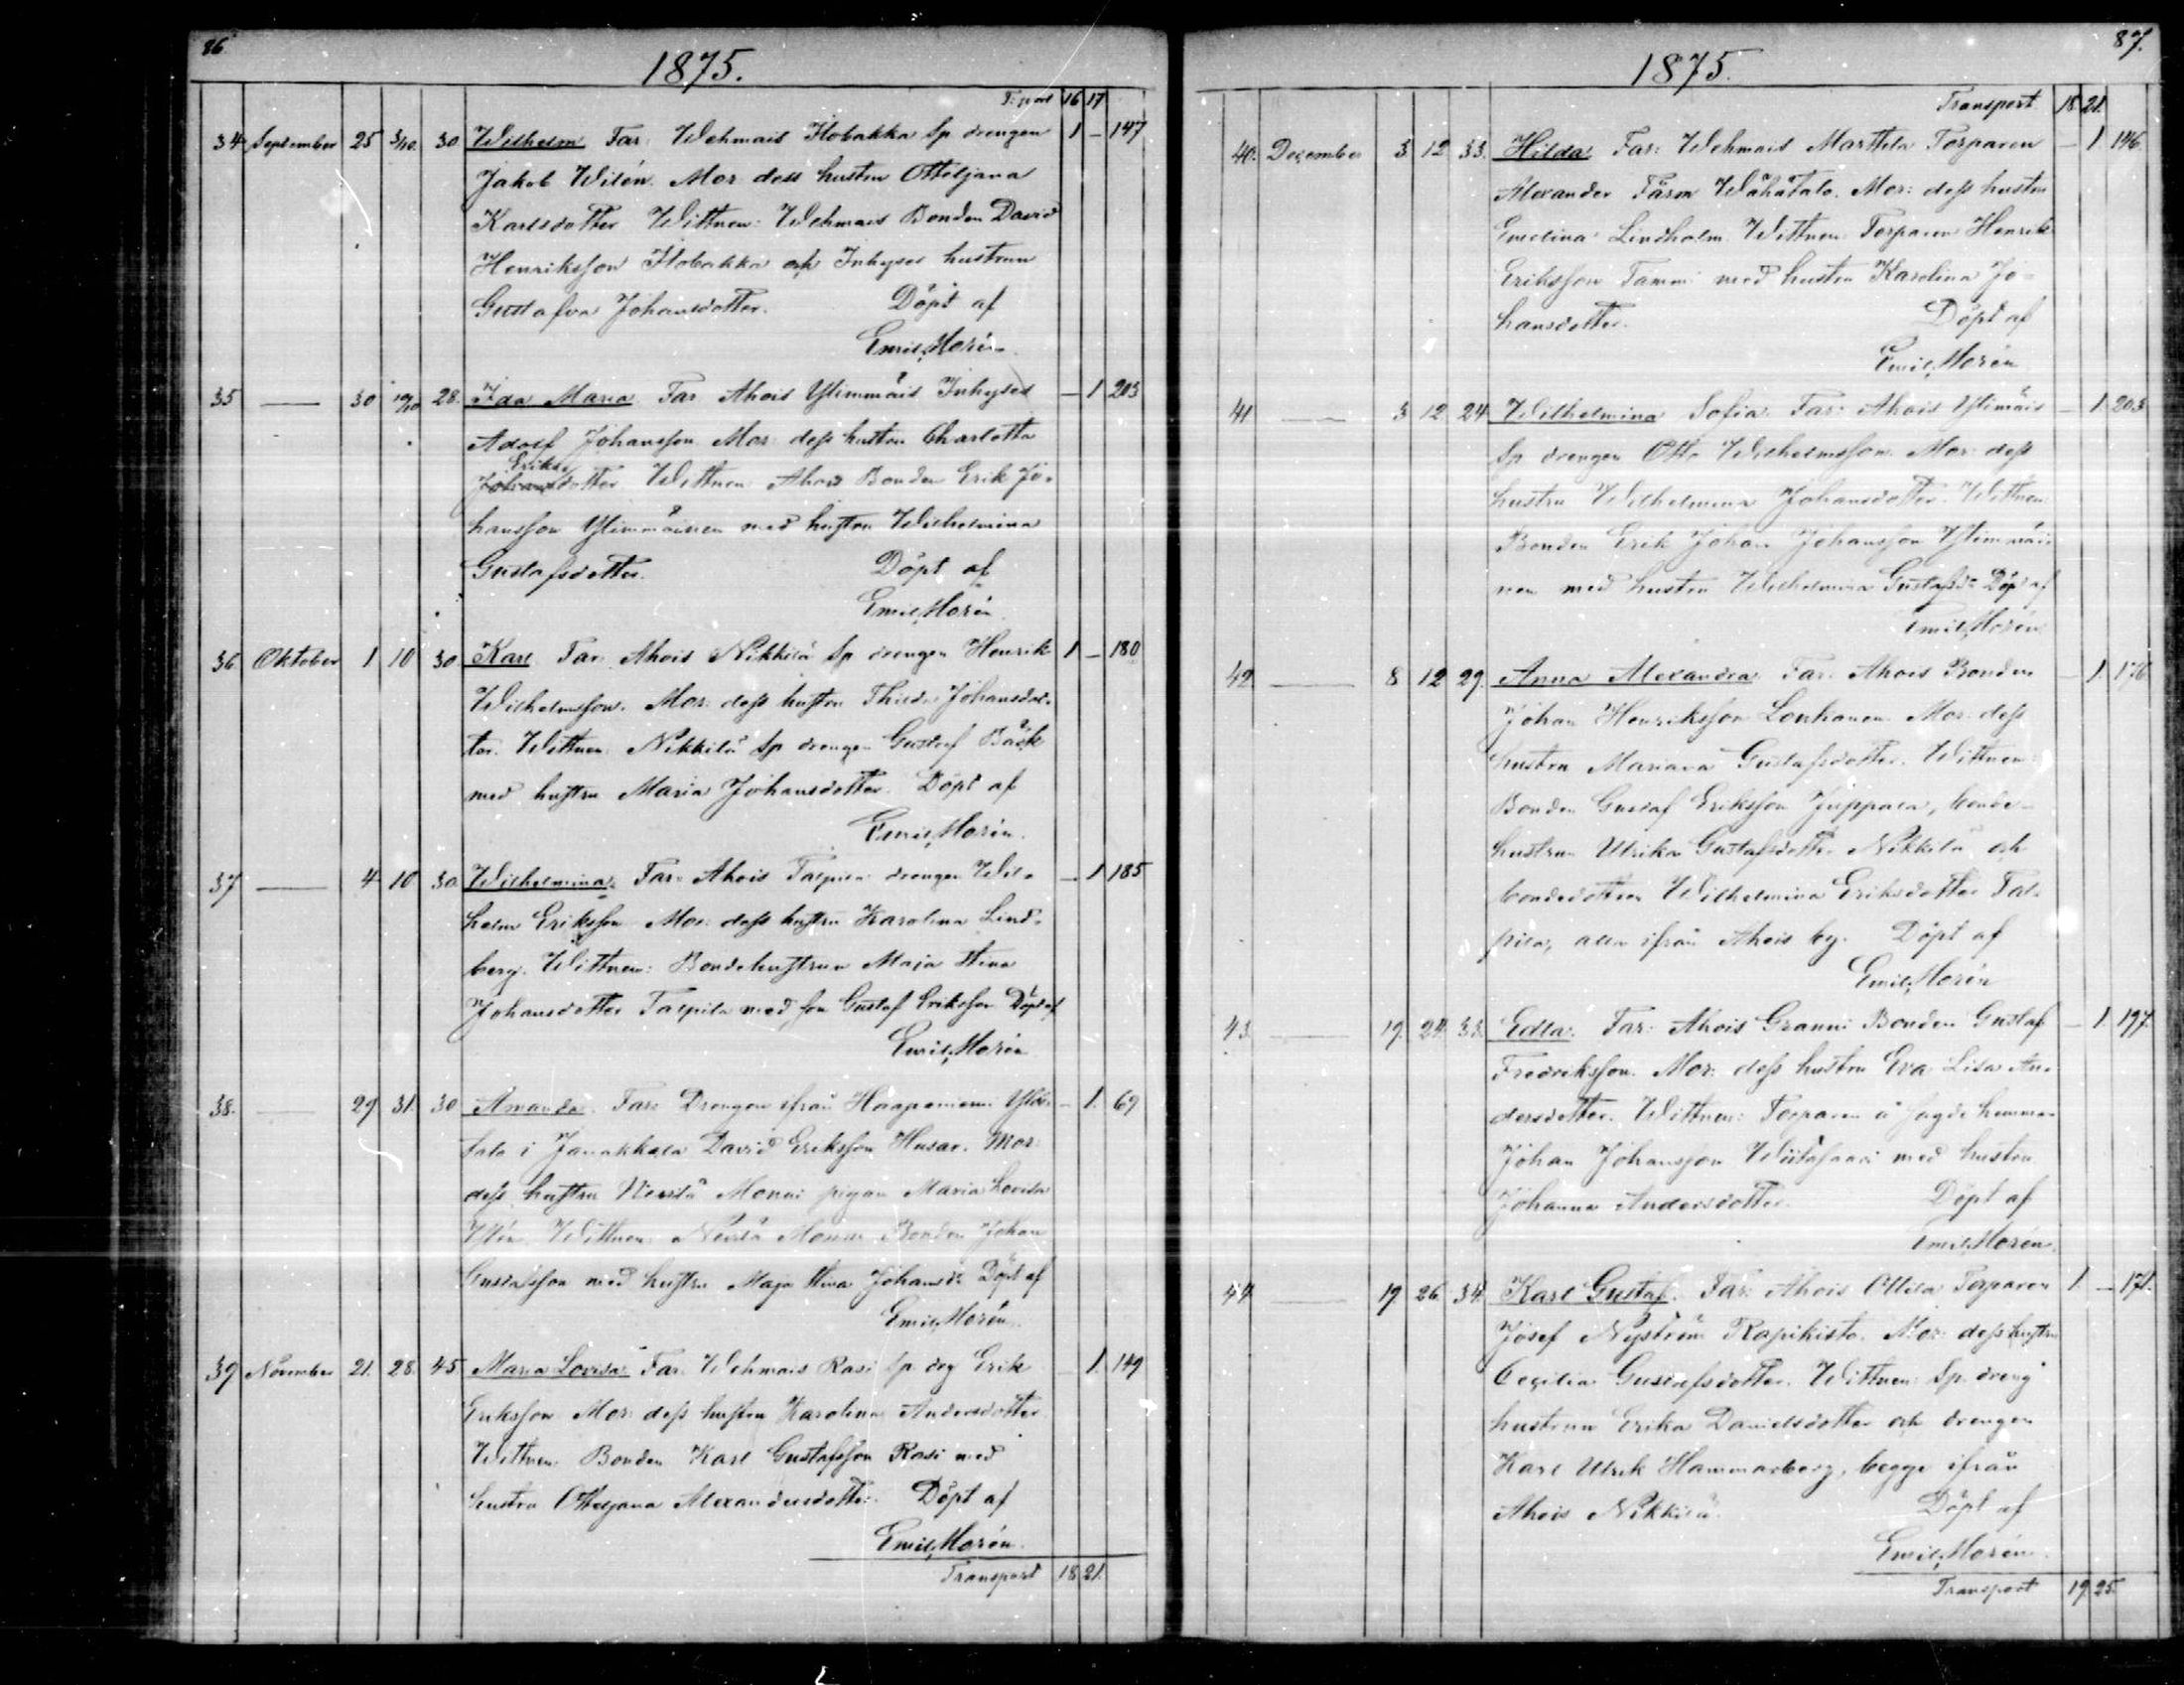 86
1875.
T:port 16 17
34 September 25 3/10. 30. Wilhelm Far: Wehmais Hobakka Sp drengen 1 – 147
Jakob Wilén. Mor dess hustru Ottiljana
Karlsdotter Wittnen: Wehmais Bonden David
Henriksson Hobakka och Inhyses hustrun
Gustafva Johansdotter. Döpt af
Emil Morén
35 — 30 10/10 28. Ida Maria Far Ahois Ylimmäis Inhyses – 1 203
Adolf Johansson Mor: dess hustru Charlotta
Eriks
Johansdotter Wittnen Ahois Bonden Erik Jo-
hansson Ylimmäinen med hustru Wilhelmina
Gustafsdotter. Döpt af
Emil Morén
36 Oktober 1 10 30. Karl Far Ahois Nikkilä Sp drengen Henrik 1 – 180
Wilhelmsson. Mor: dess hustru Johansdot-
ter. Wittnen: Nikkilä Sp drengen Gustaf Bäck
med hustru Maria Johansdotter. Döpt af
Emil Morén.
37 — 4 10 30. Wilhelmina Far: Ahois Talpila drengen Wil- – 1 185
helm Eriksson Mor: dess hustru Karolina Lind-
berg. Wittnen: Bondehustrun Maja Stina
Johansdotter Talpila med son Gustaf Eriksson Döpt af
Emil Morén
38. — 29 31. 30 Amanda. Far: Drengen ifrån Haapaniemi – 1. 69
i Janakkala David Eriksson Husar. Mor:
dess hustru Monni pigan Maria Lovisa
Wittnen: Monni Bonden Johan
Gustafsson med hustru Maja Stina Johansdr Döpt af
Emil Morén.
39 November 21. 28. 45 Maria Lovisa. Far. Wehmais Rasi Sp drg Erik – 1. 149
Eriksson Mor: dess hustru Karolina Andersdotter
Wittnen: Bonden Karl Gustafsson Rasi med
hustru Ottiljana Alexandersdotter. Döpt af
Emil Morén.
Transport 18 21.
87.
1875.
Transport 18 21.
40. December 3 12 33. Hilda Far: Wehmais Marttila Torparen – 1. 146.
Alexander Färm Wähätalo. Mor: dess hustru
Emelina Lindholm Wittnen: Torparen Henrik
Eriksson Tammi med hustru Karolina Jo-
hansdotter. Döpt af
Emil Morén
41 — 3 12 24 Wilhelmina Sofia. Far: Ahois Ylimäis – 1. 203
Sp drengen Otto Wilhelmsson. Mor: dess
hustru Wilhelmina Johansdotter. Wittnen:
Bonden Erik Johan Johansson Ylimmäi-
nen med hustru Wilhelmina Gustafsdr Döpt af
Emil Morén
42 — 8 12 29. Anna Alexandra Far: Ahois Bonden – 1. 176
Johan Henriksson Mor: dess
hustru Mariana Gustafsdotter. Wittnen:
Bonden Gustaf Eriksson Juppala, bonde-
hustrun Ulrika Gustafsdotter Nikkilä och
bondedottren Wilhelmina Eriksdotter Tal-
pila, alla ifrån Ahois by. Döpt af
Emil Morén
43. — 19. 24. 33. Edla. Far: Ahois Granni Bonden Gustaf – 1. 197.
Fredriksson. Mor: dess hustru Eva Lisa An-
dersdotter. Wittnen: Torparen å sagde hemman
Johan Johansson Wiitasaari med hustru
Johanna Andersdotter. Döpt af
Emil Morén.
44 — 19. 26. 34. Karl Gustaf. Far: Ahois Ottila Torparen 1. – 171.
Josef Nyström Rapikisto. Mor: dess hustru
Cecilia Gustafsdotter. Wittnen: Sp. dreng
hustrun Erika Danielsdotter och drengen
Karl Ulrik Hammarberg, begge ifrån
Ahois Nikkilä. Döpt af
Emil Morén.
Transport 19 25.